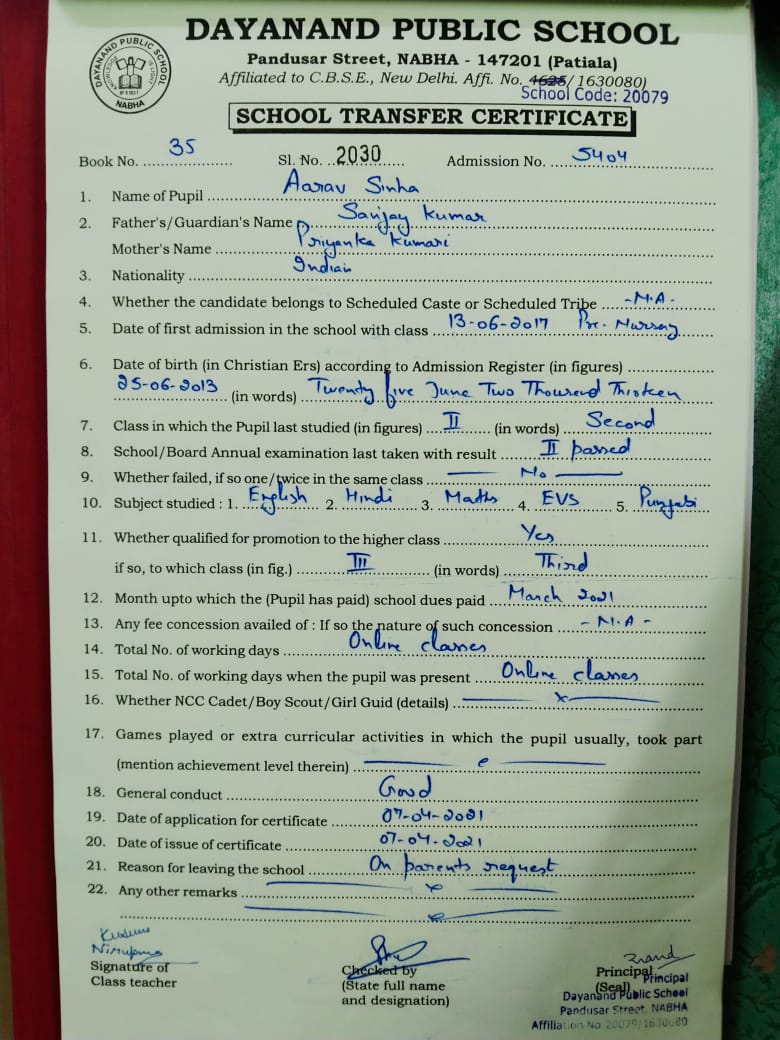 DAYANAND PUBLIC SCHOOL
DAYANAND PUBLIC SCHOOL
NABHA
Pandusar Street, NABHA - 147201 (Patiala)
Affiliated to C.B.S.E., New Delhi. Affi. No. 4625/1630080)
School Code: 20079
SCHOOL TRANSFER CERTIFICATE
Book No. 35 Sl. No. 2030 Admission No. 5404
1. Name of Pupil Aarav Sinha
2. Father's/Guardian's Name Sanjay Kumar
Mother's Name Priyanka Kumari
3. Nationality Indian
4. Whether the candidate belongs to Scheduled Caste or Scheduled Tribe -N.A-
5. Date of first admission in the school with class 13-06-2017 Pre-Nursary
6. Date of birth (in Christian Ers) according to Admission Register (in figures)
25-06-2013 (in words) Twenty five June Two Thousand Thirteen
7. Class in which the Pupil last studied (in figures) II (in words) Second
8. School/Board Annual examination last taken with result II passed
9. Whether failed, if so one/twice in the same class No
10. Subject studied : 1. English 2. Hindi 3. Maths 4. EVS 5. Punjabi
11. Whether qualified for promotion to the higher class Yes
if so, to which class (in fig.) III (in words) Third
12. Month upto which the (Pupil has paid) school dues paid March 2021
13. Any fee concession availed of : If so the nature of such concession -N.A-
14. Total No. of working days Online classes
15. Total No. of working days when the pupil was present Online classes
16. Whether NCC Cadet/Boy Scout/Girl Guid (details) x
17. Games played or extra curricular activities in which the pupil usually, took part
(mention achievement level therein)
18. General conduct Good
19. Date of application for certificate 07-04-2021
20. Date of issue of certificate 07-04-2021
21. Reason for leaving the school On parents request
22. Any other remarks
Nirupama
Signature of
Class teacher
Checked by
(State full name
and designation)
Principal
(Seal)
Principal
Dayanand Public School
Pandusar Street, NABHA
Affiliation No. 20079/1630080